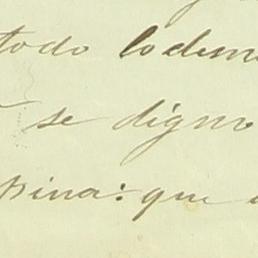 todo lo dem
se digno
pina: que